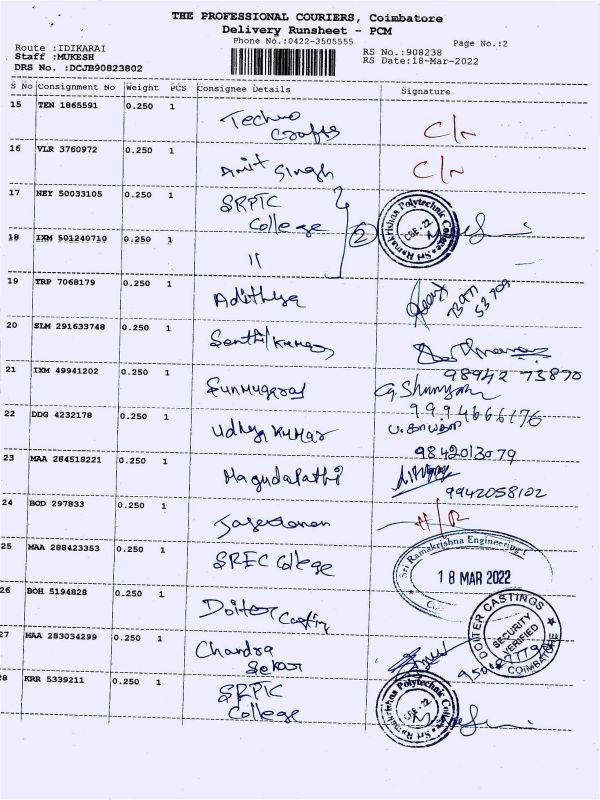 THE PROFESSIONAL COURIERS, Coimbatore
Delivery Runsheet - PCM
Phone No.:0422-3505555
Page No.:2
Route :IDIKARAI
Staff :MUKESH
DRS No. :DCJB90823802
RS No.:908238
RS Date:18-Mar-2022
S No Consignment No Weight PCS Consignee Details Signature
15 TEN 1865591 0.250 1 Techno Crafts C/N
16 VLR 3760972 0.250 1 Amit Singh C/N
17 NEY 50033105 0.250 1 SRPTC College 2
Sri Ramakrishna Polytechnic College CBE-22
18 IXM 501240710 0.250 1 "
19 TRP 7068179 0.250 1 Adithya
53709
20 SLM 291633748 0.250 1 Senthil Kumar
98942 73870
21 IXM 49941202 0.250 1 Sunmugaraj
9994666176
22 DDG 4232178 0.250 1 Udhya Kumar
9842013079
23 MAA 284518221 0.250 1 Magudapathi
9942058102
24 BOD 297833 0.250 1
25 MAA 288423353 0.250 1 SREC College
Sri Ramakrishna Engineering
18 MAR 2022
26 BOH 5194828 0.250 1 Doiter Casting
DOITER CASTINGS
SECURITY VERIFIED
COIMBATORE
27 MAA 283034299 0.250 1 Chandra Sekar
28 KRR 5339211 0.250 1 SRPTC College
Sri Ramakrishna Polytechnic College CBE-22